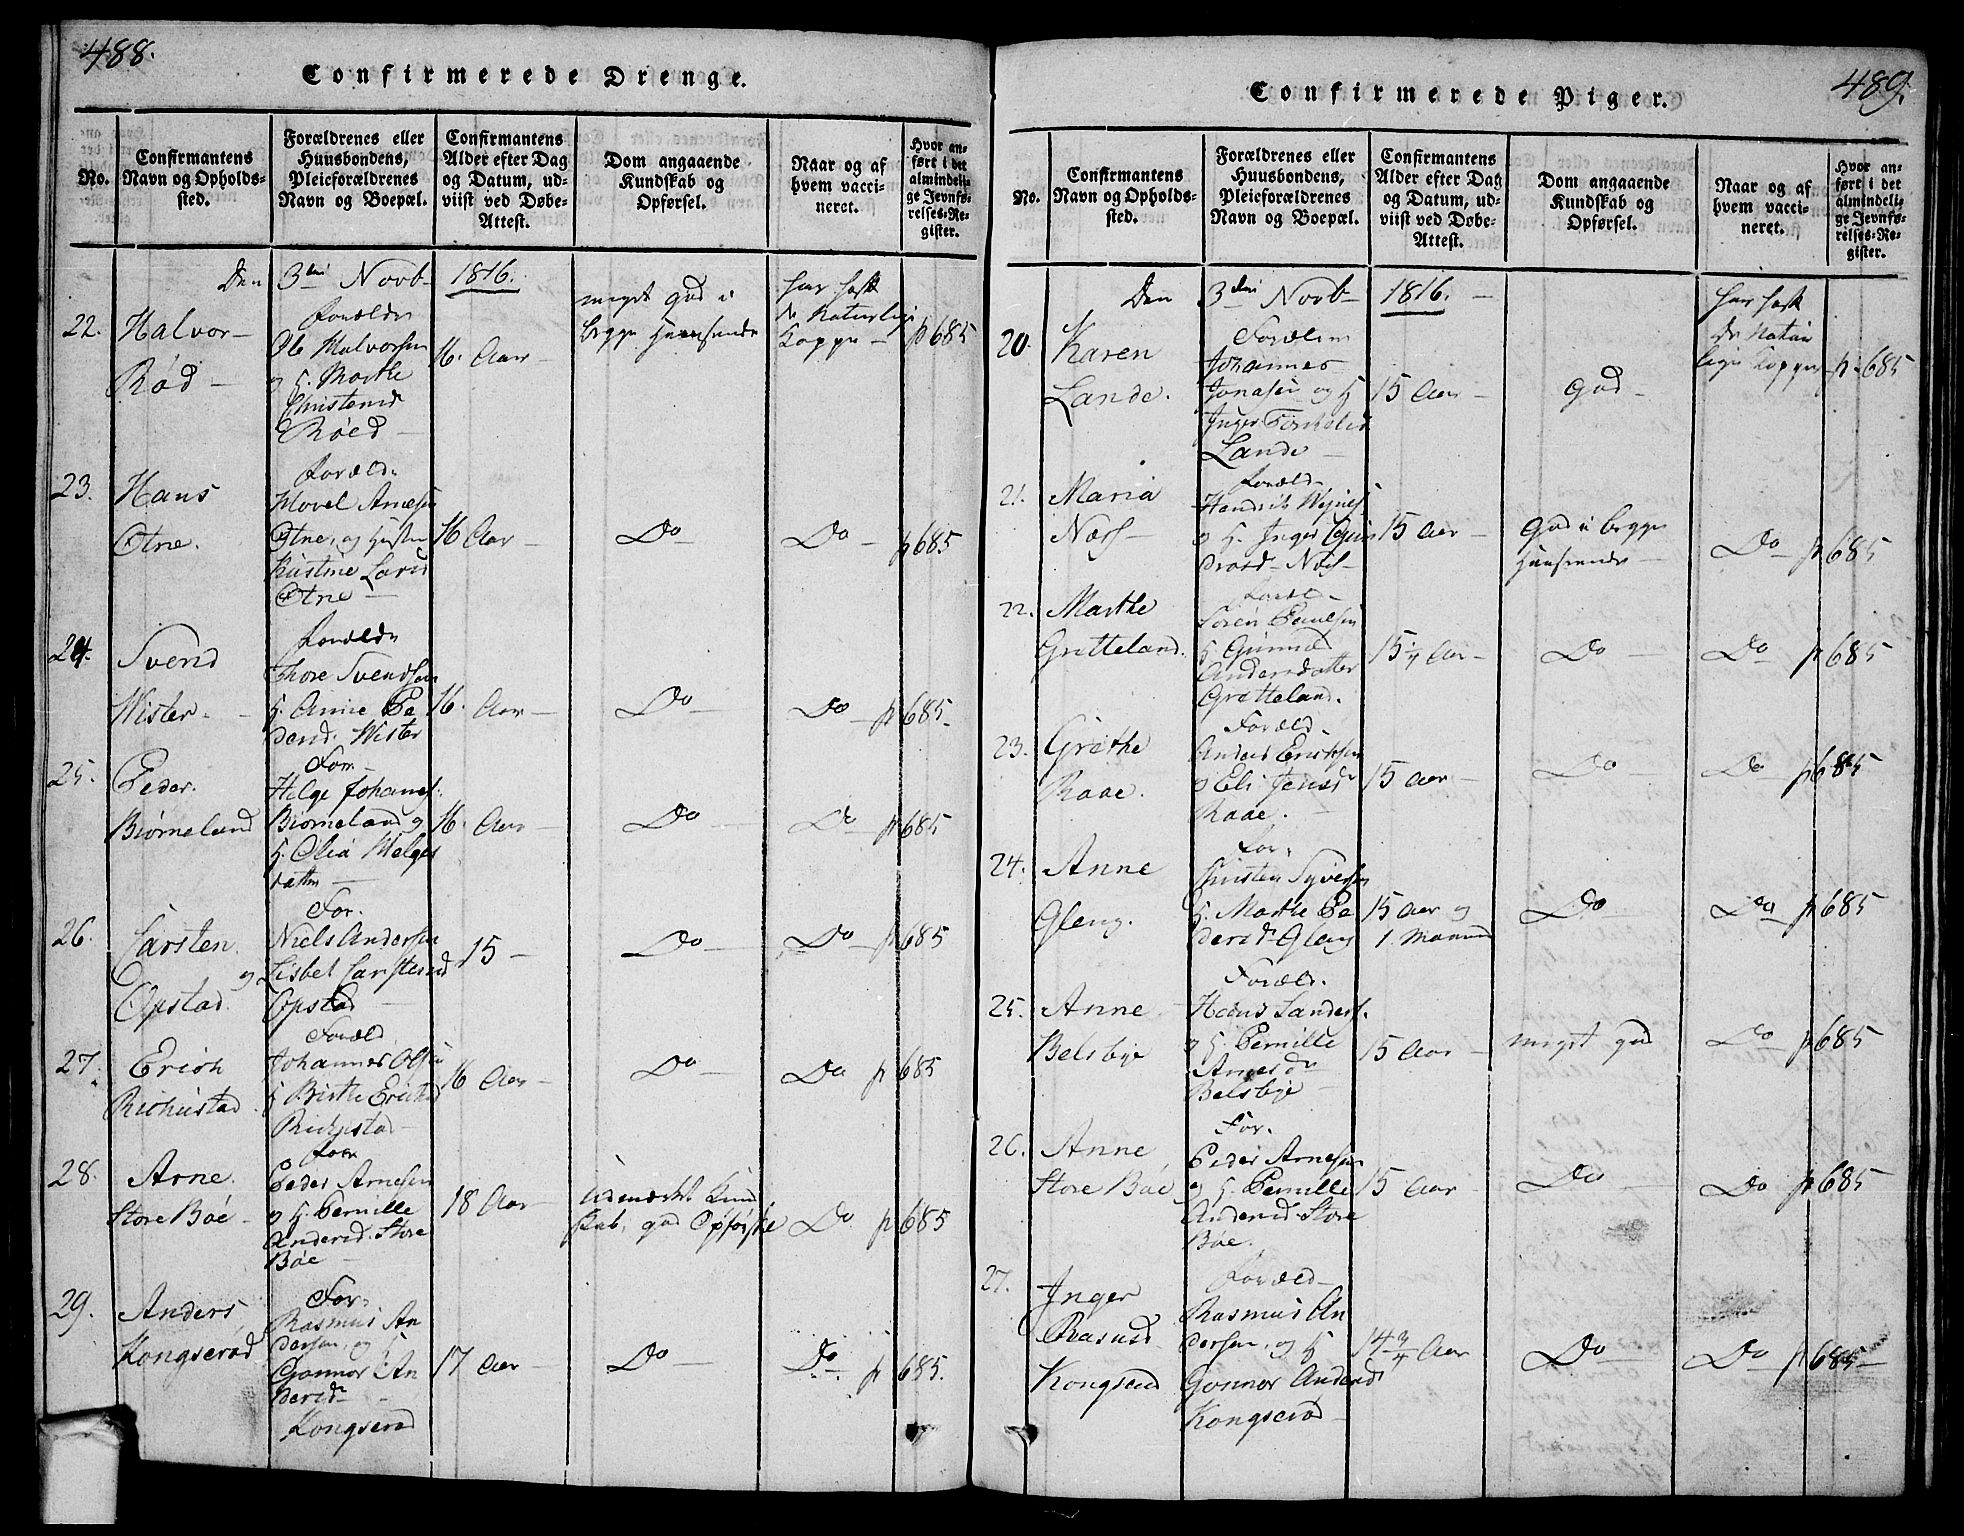 488.
Confirmerede Drenge.
No.
Confirmantens
Navn og Opholds-
sted.
Forældrenes eller
Huusbondens,
Pleieforældrenes
Navn og Boepæl.
Confirmantens
Alder efter Dag
og Datum, ud-
viist ved Døbe-
Attest.
Dom angaaende
Kundskab og
Opførsel.
Naar og af
hvem vacci-
neret.
Hvor an-
ført i det
almindeli-
ge Jevnfø-
relses-Re-
gister.
Den 3die Novb 1816.
22. Halvor
Rød
Forældr
Ole Halvorsen
og H. Marthe
Christensd
Røed
16. Aar
meget god i
begge Hensende
har hafft
de Naturlige
Kopper
p 685
23. Hans
Otne.
Foræld.
Hovel Arnesen
Otne, og Hustru
Kirstine Larsd
Otne
16 Aar
Do
Do
p 685
24. Svend
Wister.
Forældr
Thore Svendsen
H. Anne Pe
dersd. Wister
16. Aar
Do
Do
p 685.
25. Peder.
Biørneland
For
Helge Johanes.
Biørneland og
H. Olea Helges
datter
16. Aar
Do
Do
p 685
26. Carsten
Opstad
For.
Niels Andersen
og Lisbet Carstensd
Opstad
15
Do
Do
p 685
27. Erich
Richustad
Foræld
Johannes Olsen
H Birthe Ericksd
Richustad
16 Aar
Do
Do
p 685
28. Arne.
Store Bøe
For
Peder Arnesen
og H. Pernille
Andersd. Store
Bøe
18 Aar
Udmærket Kund
skab, god Opførsel
Do
p 685
29. Anders
Kongserød
For
Rasmus An
dersen, og H
Gonnor An
dersd
Kongserød
17 Aar
Do
Do
p 685.
489.
Confirmerede Piger.
No.
Confirmantens
Navn og Opholds-
sted.
Forældrenes eller
Huusbondens,
Pleieforældrenes
Navn og Boepæl.
Confirmantens
Alder efter Dag
og Datum, ud-
viist ved Døbe-
Attest.
Dom angaaende
Kundskab og
Opførsel.
Naar og af
hvem vacci-
neret.
Hvor an-
ført i det
almindeli-
ge Jevnfø-
relses-Re-
gister.
Den 3die Novb 1816.
20. Karen
Lande.
Forældre
Johannes
Jonasen og H
Inger
Lande
15 Aar
god
har hafft
de Natur
lige Kopper
p. 685
21. Maria
Næss
Foræld.
Hendrik
og H. Inger Gun
Næss
15 Aar
God i begge
Hensende
Do
p 685
22. Marthe
Grætteland.
Foræld
Søren Poulsen
H. Gunnild
Andersdatter
Grætteland.
15 1/4 Aar
Do
Do
p 685
23. Grethe
Raae.
Foræld.
Anders Ericksen
og Eli Jensd
Raae.
15 Aar
Do
Do
p 685
24. Anne
Gleng.
For.
Christen Syversen
H. Marthe Pe
dersd Gleng
15 Aar og
1. Maaned
Do
Do
p 685
25. Anne
Belsbye
Foræld.
Hans Landers.
og H. Pernille
Arnesd
Belsbye
15 Aar
meget god
Do
p 685
26. Anne
Store Bøe
For.
Peder Arnesen
og H. Pernille
Andersd Store
Bøe.
15 Aar
Do
Do
p 685
27. Inger
Rasmusd
Kongserød
Foræld
Rasmus An
dersen, og H
Gonnor Andersd
Kongserød
14 3/4 Aar
Do
Do
p 685